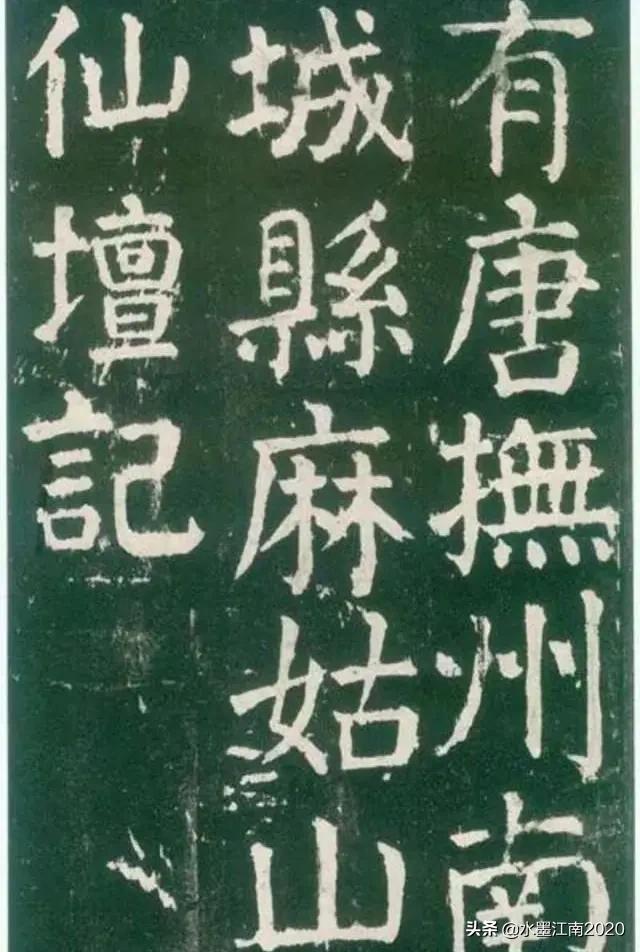 有唐撫州南
城縣麻姑山
仙壇記
头条 @水墨江南2020